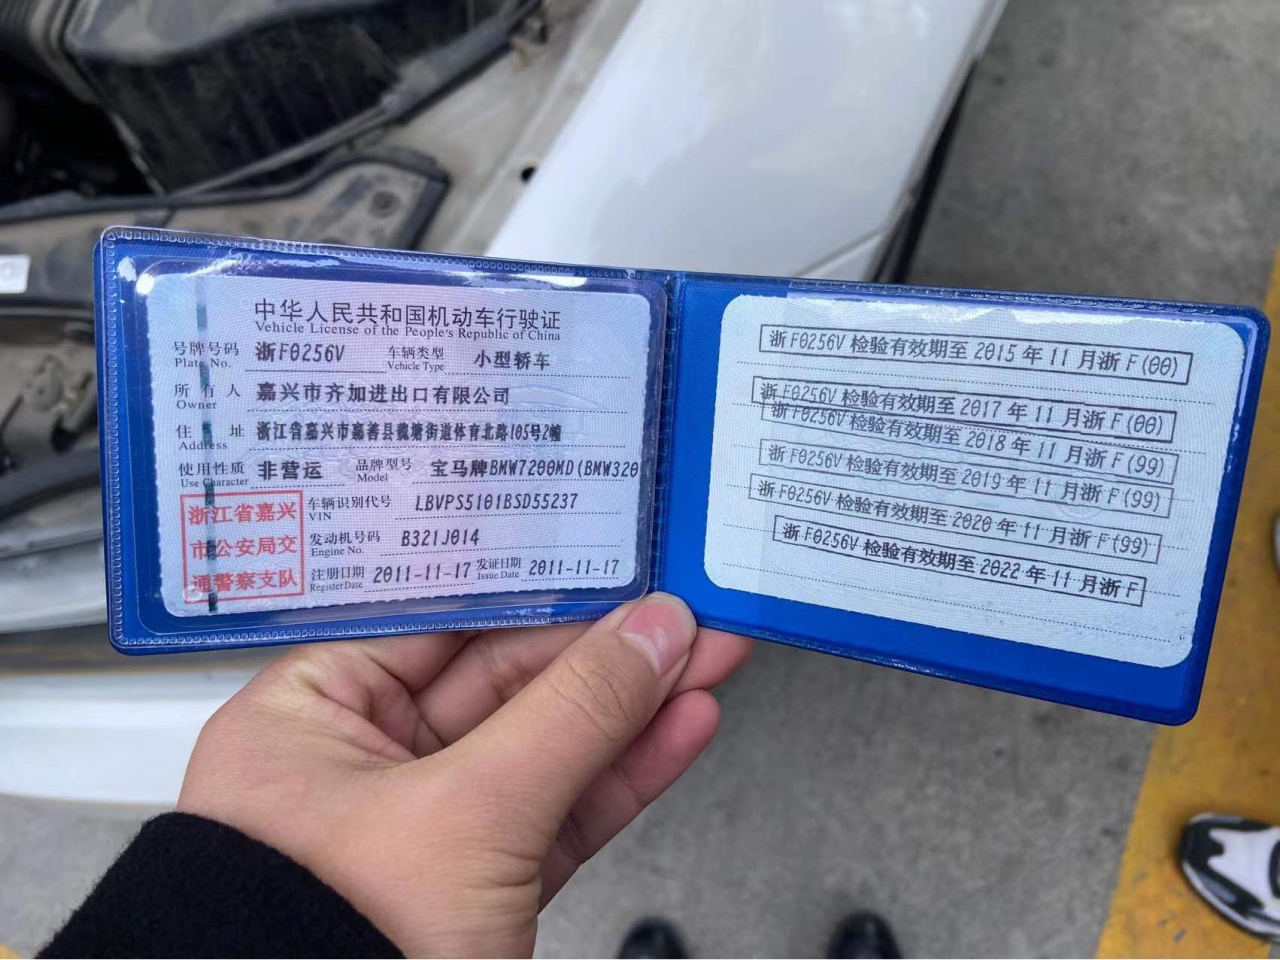 中华人民共和国机动车行驶证
Vehicle License of the People's Republic of China
号牌号码 浙F0256V 车辆类型 小型轿车
Plate No. Vehicle Type
所有人 嘉兴市齐加进出口有限公司
Owner
住址 浙江省嘉兴市嘉善县魏塘街道体育北路105号2幢
Address
使用性质 非营运 品牌型号 宝马牌BMW7200MD(BMW320
Use Character Model
浙江省嘉兴
市公安局交
通警察支队
车辆识别代号 LBVPS5101BSD55237
VIN
发动机号码 B321J014
Engine No.
注册日期 2011-11-17 发证日期 2011-11-17
Register Date Issue Date
浙F0256V 检验有效期至 2015 年 11 月浙 F(00)
浙F0256V 检验有效期至 2017 年 11 月浙 F(00)
浙F0256V 检验有效期至 2018 年 11 月浙 F(99)
浙F0256V 检验有效期至 2019 年 11 月浙 F(99)
浙F0256V 检验有效期至 2020 年 11 月浙 F(99)
浙F0256V 检验有效期至 2022 年 11 月浙 F